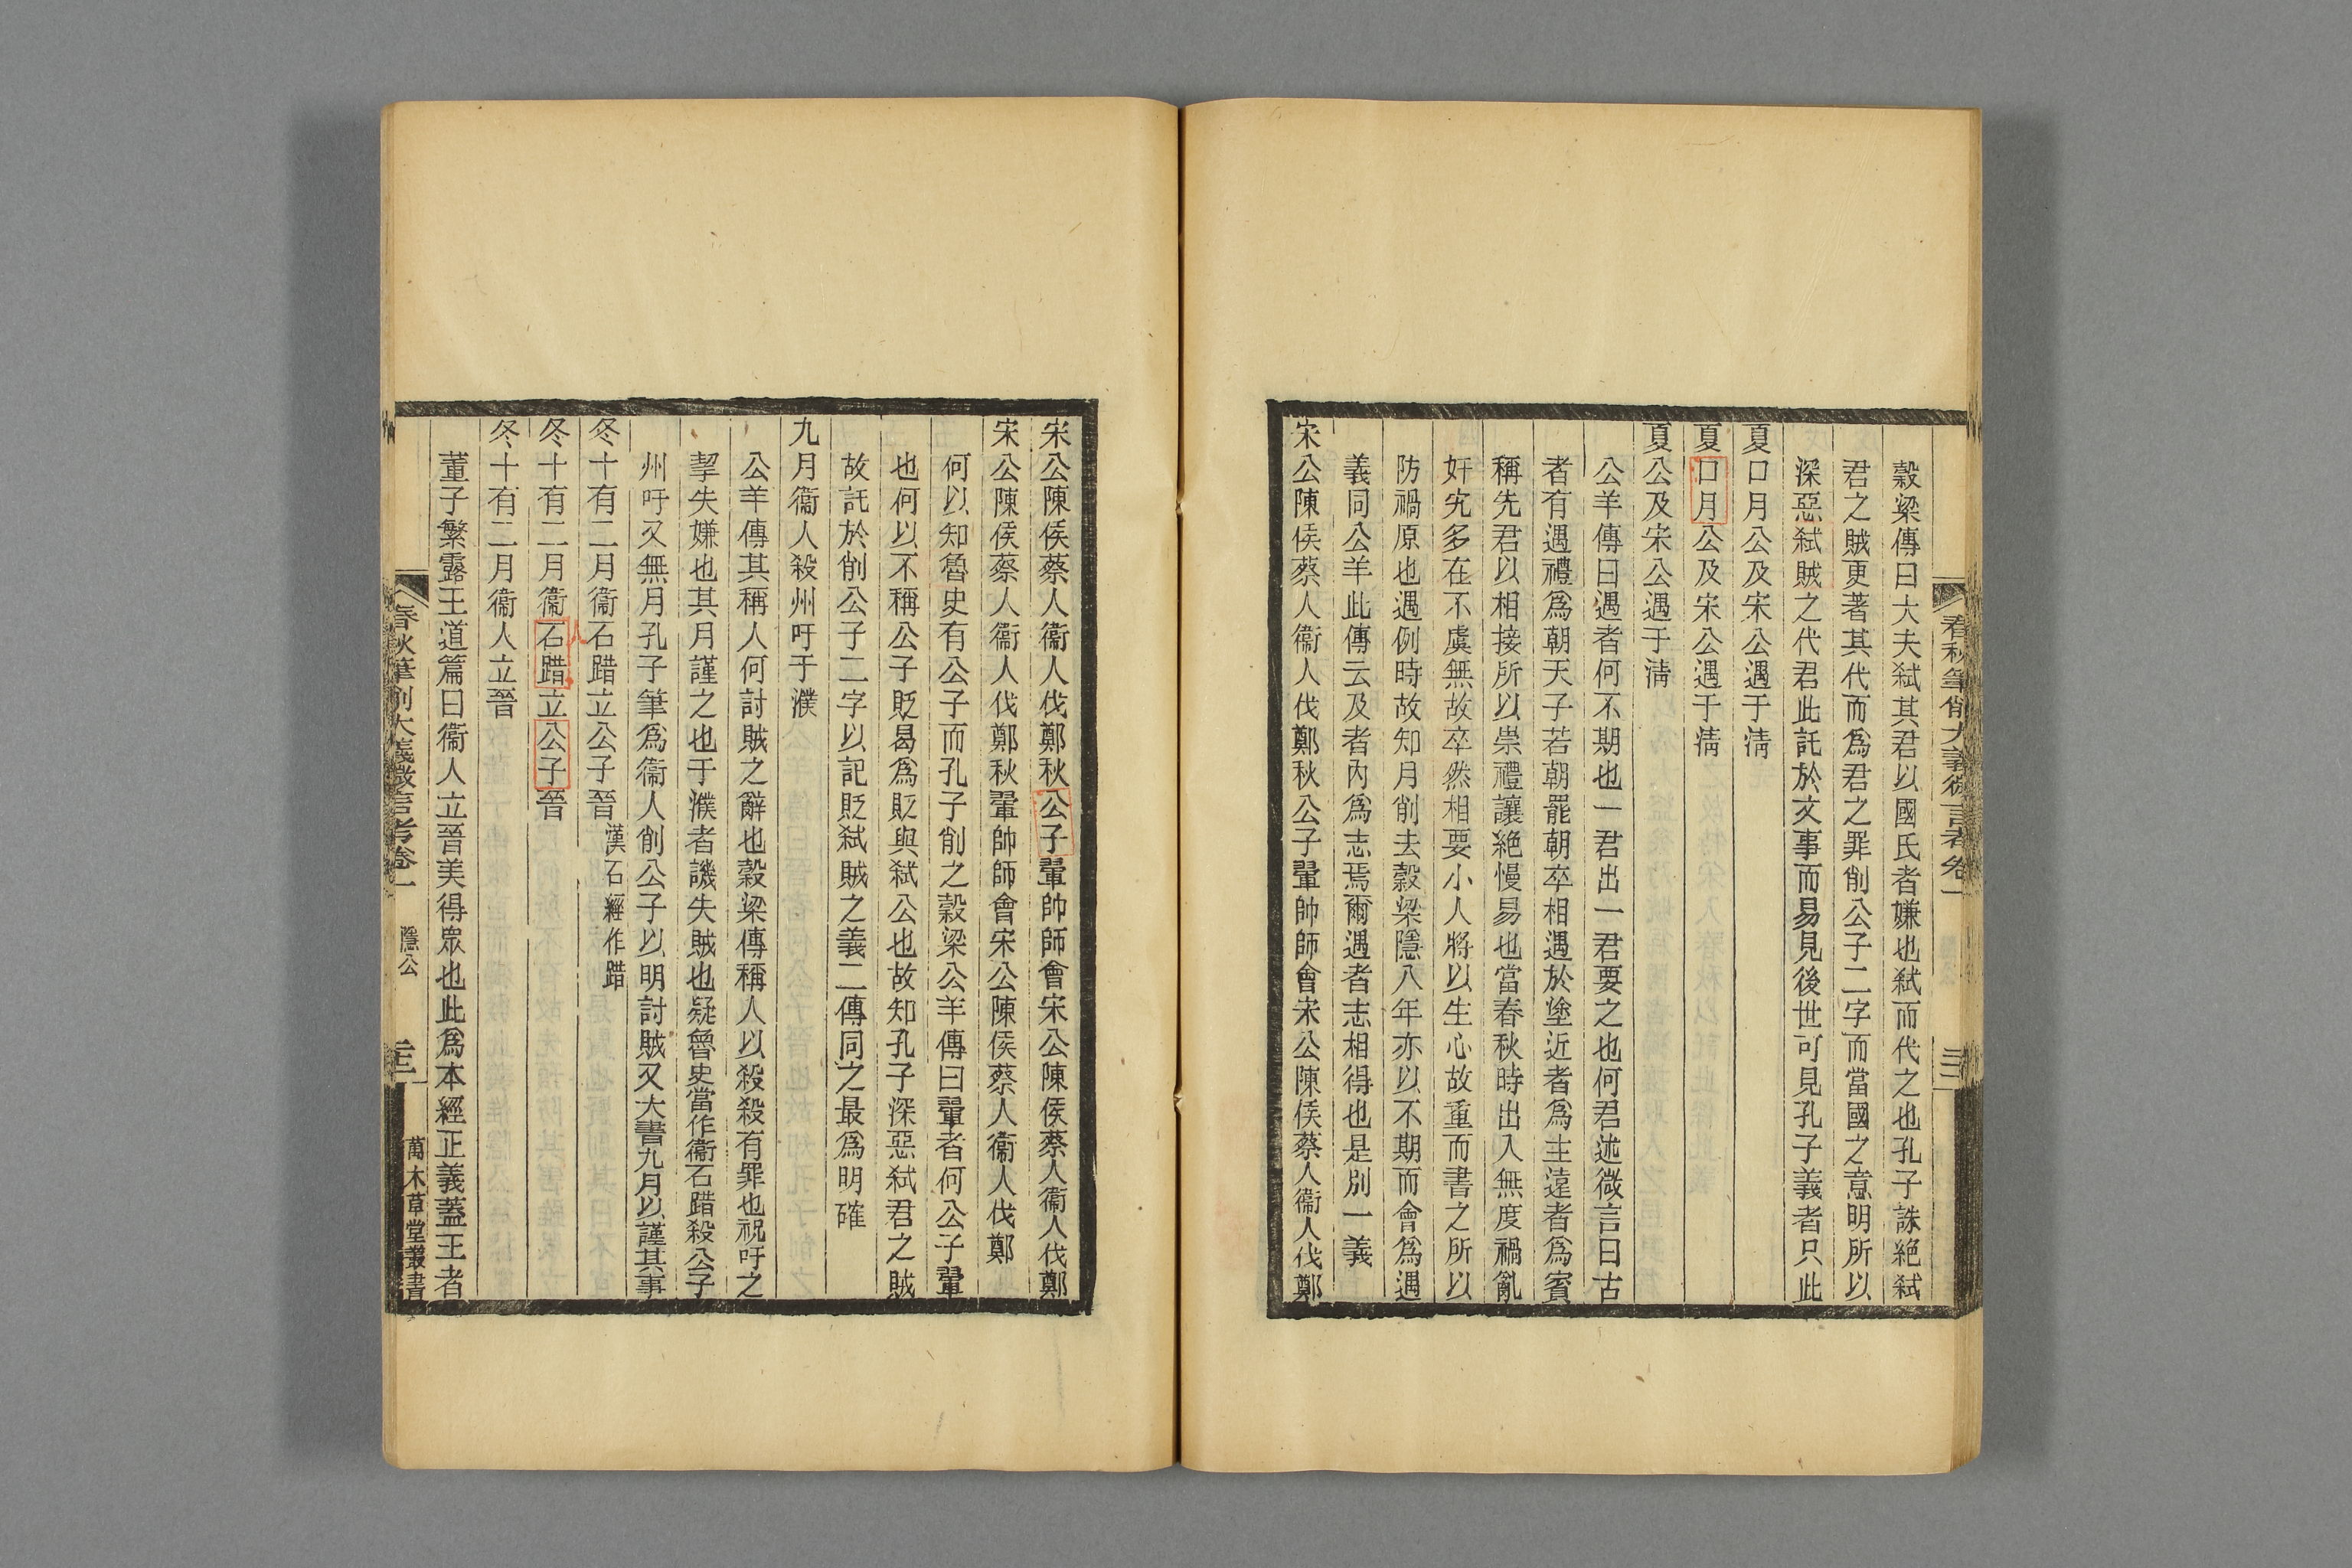 春秋筆削大義微言考卷一
穀梁傳曰大夫弑其君以國氏者嫌也弑而代之也孔子誅絕弑
君之賊更著其代而爲君之罪削公子二字而當國之意明所以
深惡弑賊之代君此託於文事而易見後世可見孔子義者只此
夏口月公及宋公遇于淸
夏口月公及宋公遇于淸
夏公及宋公遇于淸
公羊傳曰遇者何不期也一君出一君要之也何君述微言曰古
者有遇禮爲朝天子若朝罷朝卒相遇於塗近者爲主遠者爲賓
稱先君以相接所以崇禮讓絕慢易也當春秋時出入無度禍亂
奸宄多在不虞無故卒然相要小人將以生心故重而書之所以
防禍原也遇例時故知月削去穀梁隱八年亦以不期而會爲遇
義同公羊此傳云及者內爲志焉爾遇者志相得也是別一義
宋公陳侯蔡人衞人伐鄭秋公子翬帥師會宋公陳侯蔡人衞人伐鄭
宋公陳侯蔡人衞人伐鄭秋公子翬帥師會宋公陳侯蔡人衞人伐鄭
宋公陳侯蔡人衞人伐鄭秋翬帥師會宋公陳侯蔡人衞人伐鄭
何以知魯史有公子而孔子削之穀梁公羊傳曰翬者何公子翬
也何以不稱公子貶曷爲貶與弑公也故知孔子深惡弑君之賊
故託於削公子二字以記貶弑賊之義二傳同之最爲明確
九月衞人殺州吁于濮
公羊傳其稱人何討賊之辭也穀梁傳稱人以殺殺有罪也祝吁之
挈失嫌也其月謹之也于濮者譏失賊也疑魯史當作衞石踖殺公子
州吁又無月孔子筆爲衞人削公子以明討賊又大書九月以謹其事
冬十有二月衞石踖立公子晉 漢石經作踖
冬十有二月衞石踖立公子晉
冬十有二月衞人立晉
董子繁露王道篇曰衞人立晉美得眾也此爲本經正義蓋王者
春秋筆削大義微言考卷一 隱公 萬木草堂叢書